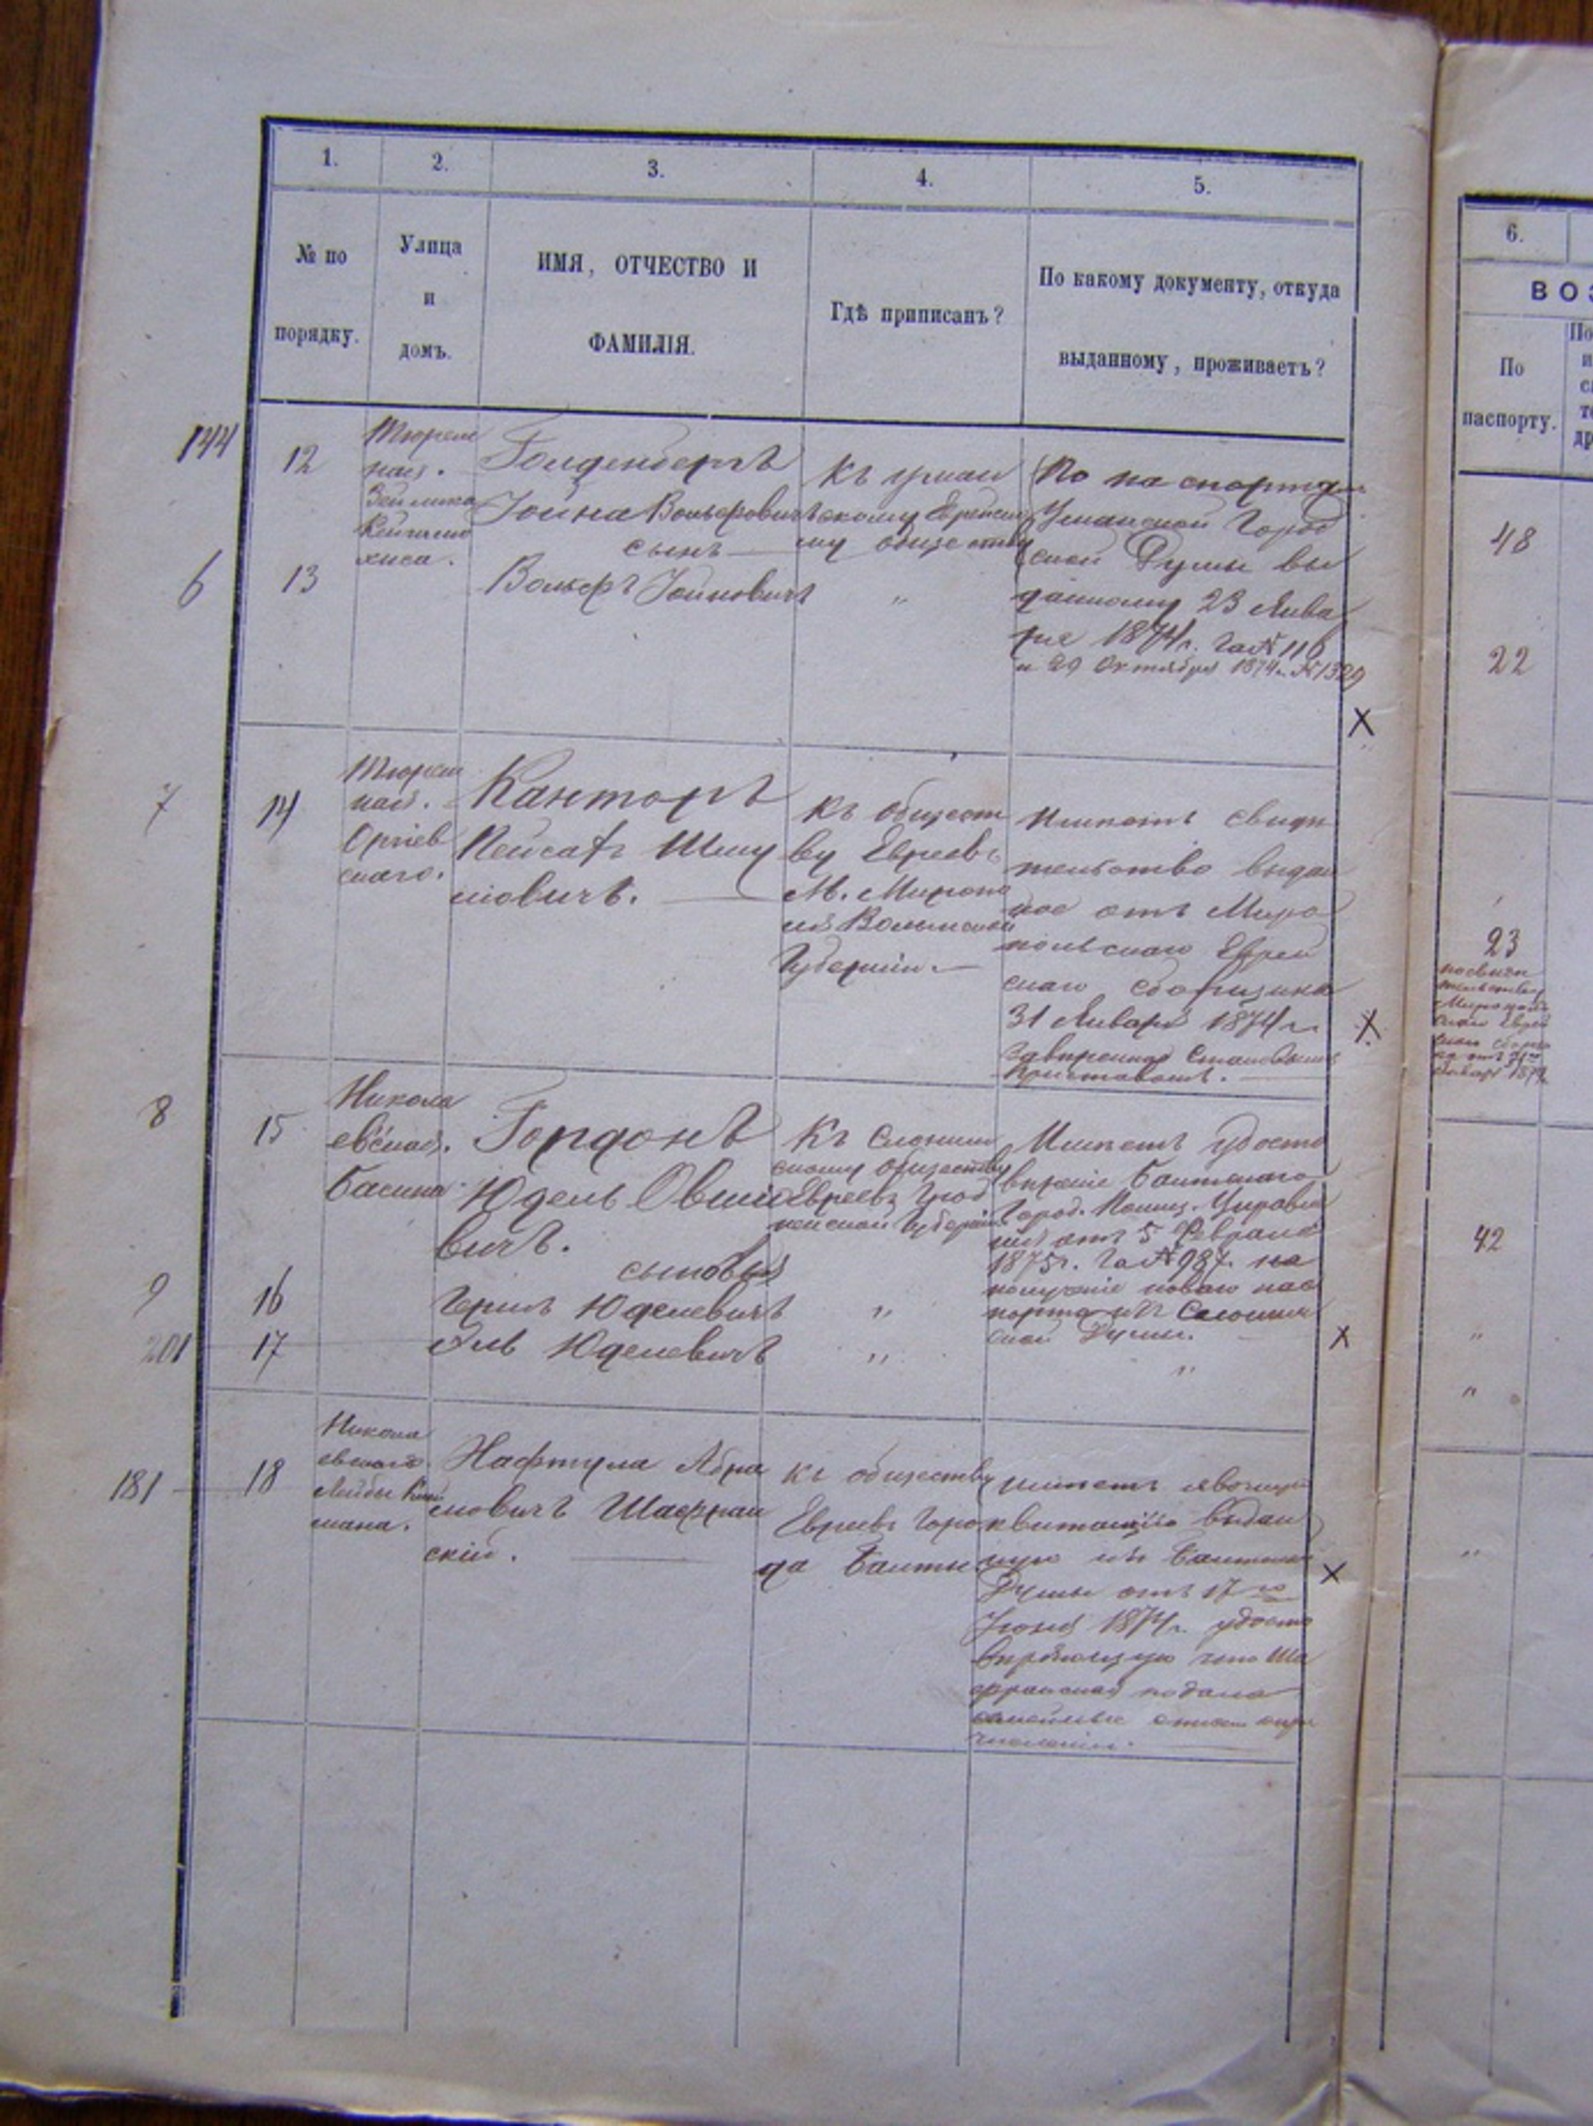 1.
2.
3.
4.
5.
№ по
порядку.
Улица
и
домъ.
ИМЯ, ОТЧЕСТВО И
ФАМИЛІЯ.
Гдѣ приписанъ?
По какому документу, откуда
выданному, проживаетъ?
144
12
Тюрем
ная.
Гольденбергъ
Іойна Вольфовичъ
сынъ
Къ уман
скому Еврейско
му обществу
По паспортам
Уманской Город
ской Думы вы
данному 23 Янва
ря 1874 г. за № 116
и 29 Октября 1874 г. № 1329
6
13
Вольфъ Іойновичъ
"
X
7
14
Тюрем
ная.
Канторъ
Пейсахъ Шму
ловичъ.
Къ общест
ву Евреевъ
М. Миропо
ля Волынской
Губерніи.
Имѣетъ свидѣ
тельство выдан
ное отъ Миро
польскаго Еврей
скаго сборщика
31 Января 1874 г.
Приставомъ.
X
8
15
Никола
евская.
Басина
Гордонъ
Юдель Овшіо
вичъ.
сыновья
Къ Слоним
скому обществу
Евреевъ Грод
ненской Губерніи
Имѣетъ удосто
вѣреніе Балтскаго
Город. Полиц. Управле
нія отъ 5 Февраля
1875 г. за № 987. на
полученіе новаго пас
порта изъ Слоним
ской Думы.
9
16
Юделевичъ
"
201
17
Юделевичъ
"
"
X
181
18
Никола
евская
Лейбы
мана.
Нафтула Абра
мовичъ Шафран
скій.
Къ обществу
Евреевъ горо
да Балты
имѣетъ явочную
квитанцію выдан
ную изъ Балтской
Думы отъ 17 го
Іюня 1874 г. удосто
вѣряющую что Ша
франскій подалъ
X
6.
ВОЗ
По
паспорту.
48
22
23
по свидѣ
тельству
Мирополь
скаго Еврей
42
"
"
"